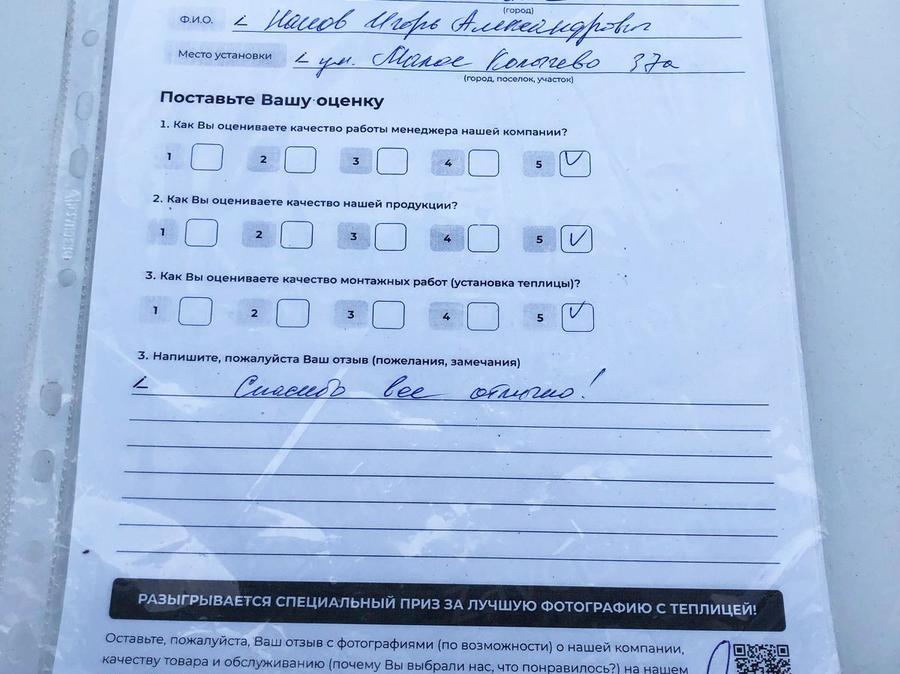 (город)
Ф.И.О. Игорь Александрович
Место установки ул. Малое Колычево 37а
(город, поселок, участок)
Поставьте Вашу оценку
1. Как Вы оцениваете качество работы менеджера нашей компании?
1 2 3 4 5
2. Как Вы оцениваете качество нашей продукции?
1 2 3 4 5
3. Как Вы оцениваете качество монтажных работ (установка теплицы)?
1 2 3 4 5
3. Напишите, пожалуйста Ваш отзыв (пожелания, замечания)
Спасибо все отлично!
РАЗЫГРЫВАЕТСЯ СПЕЦИАЛЬНЫЙ ПРИЗ ЗА ЛУЧШУЮ ФОТОГРАФИЮ С ТЕПЛИЦЕЙ!
Оставьте, пожалуйста, Ваш отзыв с фотографиями (по возможности) о нашей компании,
качеству товара и обслуживанию (почему Вы выбрали нас, что понравилось?) на нашем